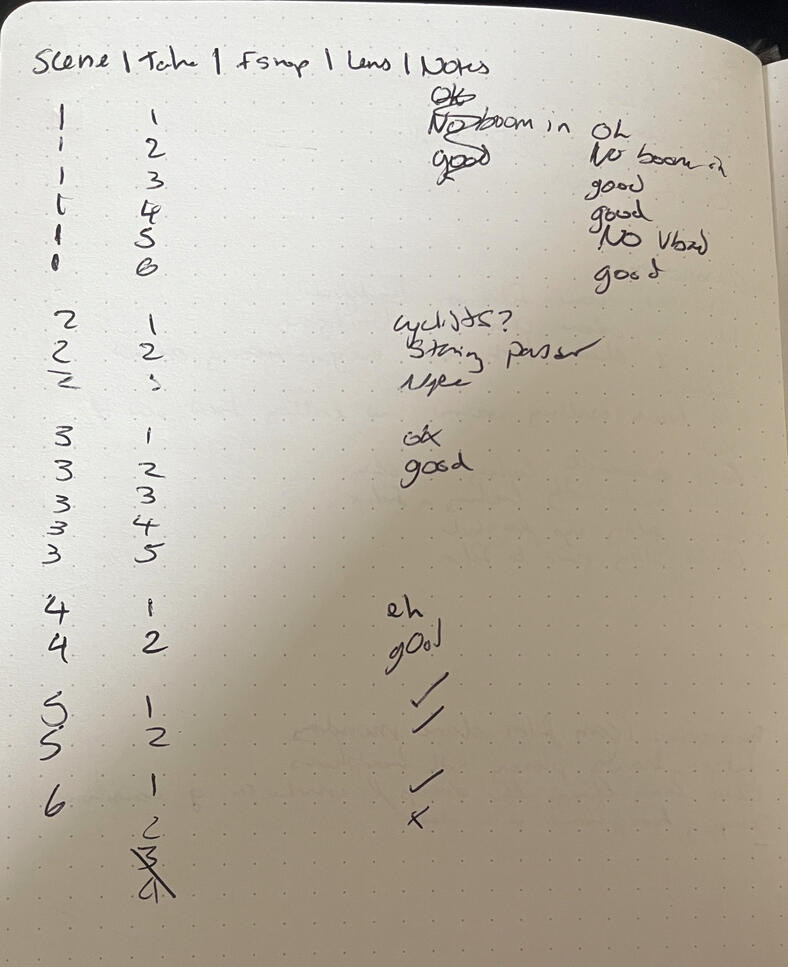 Scene | Take | Fstop | Lens | Notes
OK
1 1 No boom in OK
1 2 good No boom in
1 3 good
1 4 good
1 5 No
1 6 good
2 1 cyclists?
2 2 passer
2 3 Nope
3 1 ok
3 2 good
3 3
3 4
3 5
4 1 eh
4 2 good
5 1 ✓
5 2 ✓
6 1 ✓
2 x
3
4